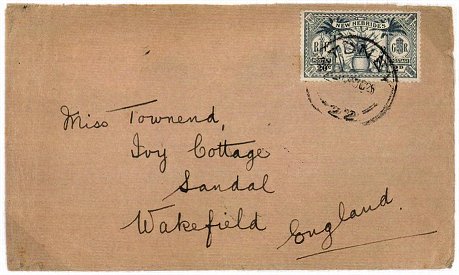 NEW HEBRIDES
SYDNEY
R F
G R
20
22
Miss Townend,
Ivy Cottage
Sandal
Wakefield
England.